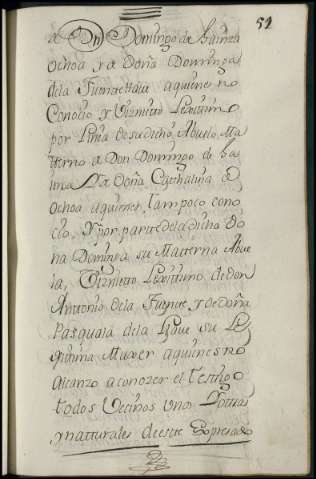 52
a Dn Domingo de
Ochoa y a Doña Dominga
dela Fuente Haia aquienes no
Conocio y Viznieto Lexitimo
por Linia de su dicho Abuelo Ma
tterno a Don Domingo de
y a Doña Catthalina de
Ochoa aquienes tampoco cono
cio, Y por parte dela dicha Do
na Dominga su Matterna Abue
la, Viznieto Lexitimo de don
Antonio dela Fuente, y de doña
Pasquala dela su Le
xitima Muxer aquienes no
alcanzo a conozer el testigo
todos Vezinos unos y ottros
y natturales de estte Expresado